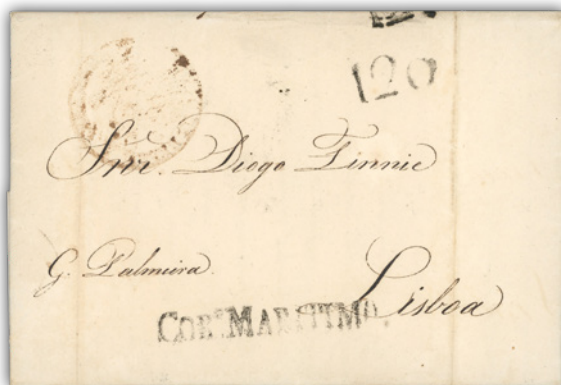 120
Snr. Diogo Finnie
G. Palmeira.
Lisboa
CORº MARITIMO.